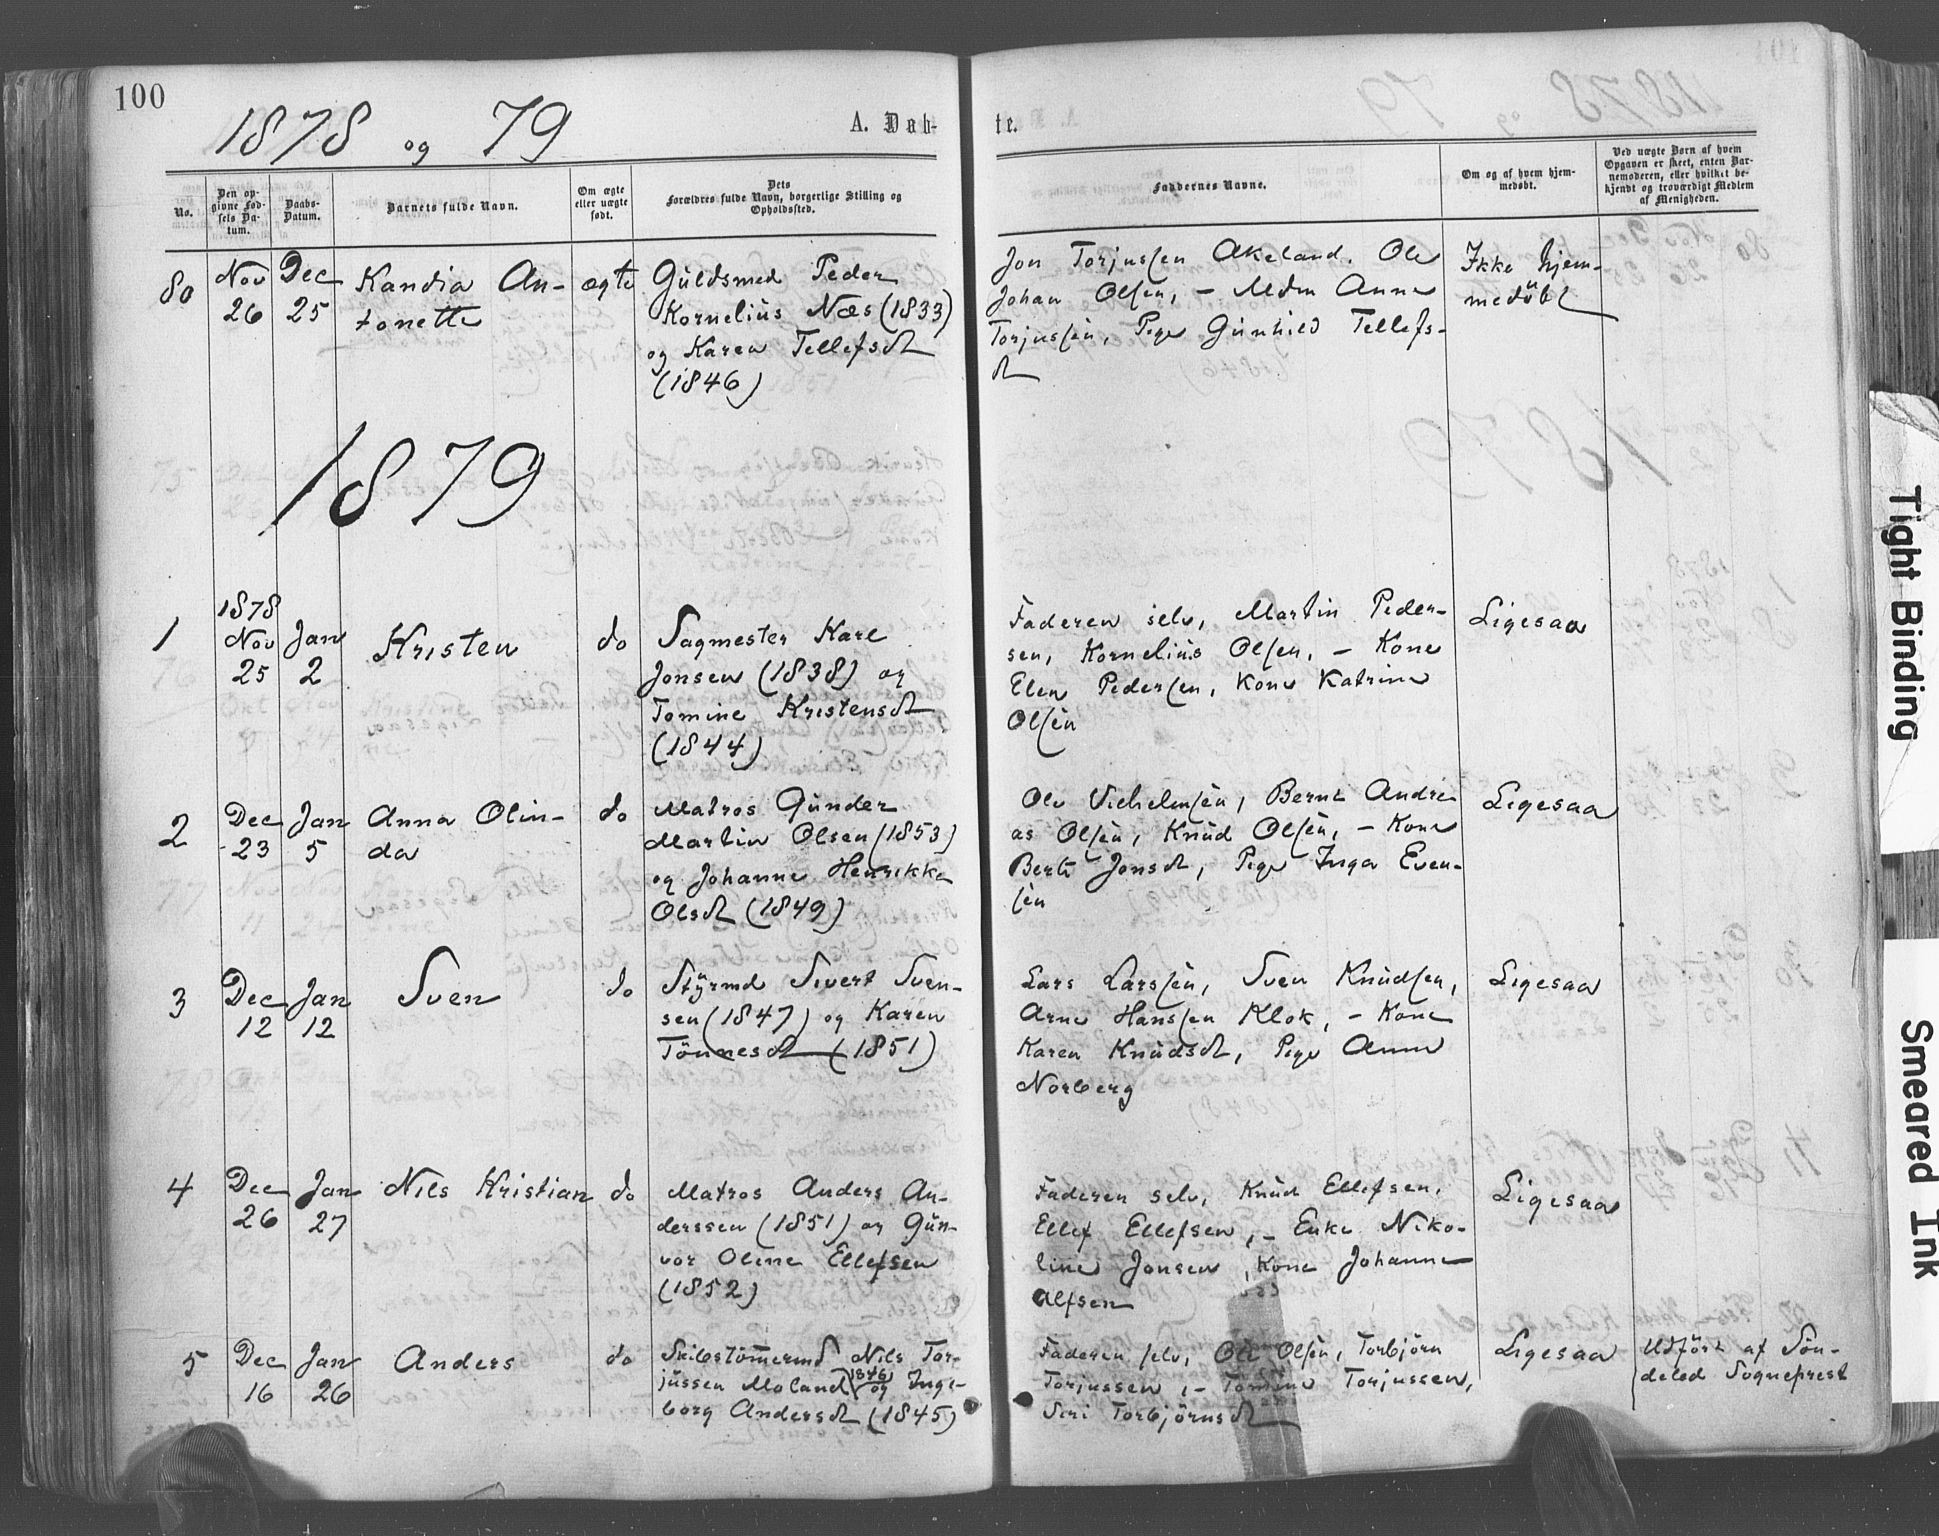 100
1878 og 79
A. Døb-
te.
No.
Den op-
givne Fød-
sels Da-
tum.
Daabs-
Datum.
Barnets fulde Navn.
Om ægte
eller uægte
født.
Dets
Forældres fulde Navn, borgerlige Stilling og
Opholdssted.
Faddernes Navne.
Om og af hvem hjem-
medøbt.
Ved uægte Børn af hvem
Opgaven er skeet, enten Bar-
nemoderen, eller hvilket be-
kjendt og troværdigt Medlem
af Menigheden.
80
Nov
26
Dec
25
Kandia An-
tonette
ægte
Guldsmed Peder
Kornelius Næs (1833)
og Karen Tellefsdt
(1846)
Jon Torjussen Akeland. Ole
Johan Olsen, – Mdm Anne
Torjussen, Pige Gunhild Tellefs-
dt
Ikke hjem-
medöbt
1879
1
1878
Nov
25
Jan
2
Kristen
do
Sagmester Karl
Jonsen (1838) og
Tomine Kristensdt
(1844)
Faderen selv, Martin Peder-
sen, Kornelius Olsen, – Kone
Elen Pedersen, Kone Katrine
Olsen
Ligesaa
2
Dec
23
Jan
5
Anna Olin-
da
do
Matros Gunder
Martin Olsen (1853)
og Johanne Henrikke
Olsdt (1849)
Ole Vilhelmsen, Bernt Andre
as Olsen, Knud Olsen, – Kone
Berte Jonsdt, Pige Inga Even-
sen
Ligesaa
3
Dec
12
Jan
12
Sven
do
Styrmd Sivert Sven-
sen (1847) og Karen
Tönnesdt (1851)
Lars Larssen, Sven Knudsen,
Arne Hanssen Klok, – Kone
Karen Knudsdt, Pige Anne
Norberg
Ligesaa
4
Dec
26
Jan
27
Nils Kristian
do
Matros Anders An-
derssen (1851) og Gun-
vor Oline Ellefsen
(1852)
Faderen selv, Knud Ellefsen,
Ellef Ellefsen, – Enke Niko-
line Jonsen, Kone Johanne
Alfsen
Ligesaa
5
Dec
16
Jan
26
Anders
do
Skibstömermd Nils Tor-
jussen Moland (1846) og Inge-
borg Andersdt (1845)
Faderen selv, Ole Olsen, Torbjörn
Torjussen, – Tomine Torjussen,
Siri Torbjörnsdt
Ligesaa
Udfört af Sön-
deled Sogneprest
Tight Binding
Smeared Ink